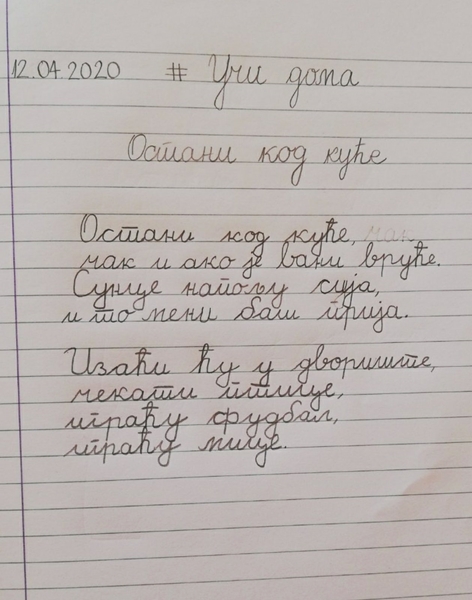 12.04.2020 # Учи дома
Остани код куће
Остани код куће, чак
чак и ако је вани вруће.
Сунце напољу сија,
и то мени баш прија.
Изаћи ћу у двориште,
чекати птице,
играћу фудбал,
играћу мице.